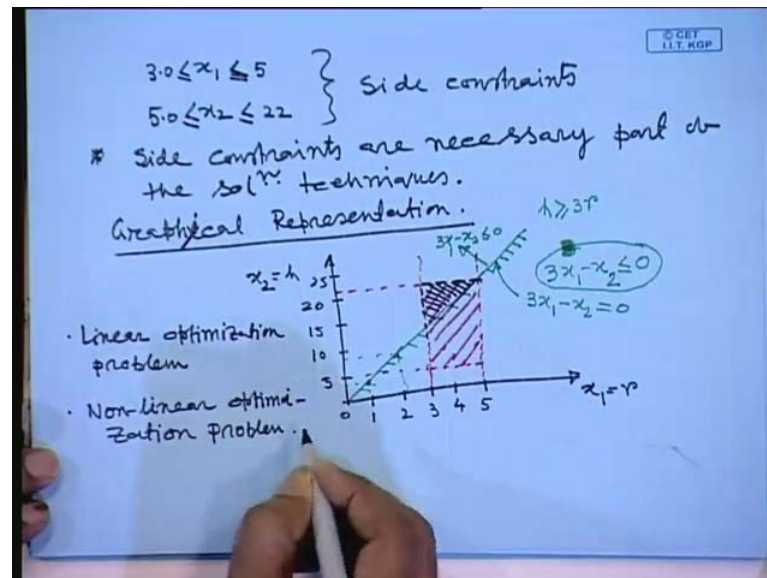 © CET
I.I.T. KGP
3.0 ≤ x₁ ≤ 5
5.0 ≤ x₂ ≤ 22
} Side constraints
* Side constraints are necessary part of
the solⁿ. techniques.
Graphical Representation.
h ≥ 3r
3x₁-x₂≤0
3x₁-x₂ ≤ 0
3x₁-x₂ = 0
x₂ = h
25
20
15
10
5
0 1 2 3 4 5
x₁ = r
· Linear optimization
problem
· Non-linear optimi-
zation problem.